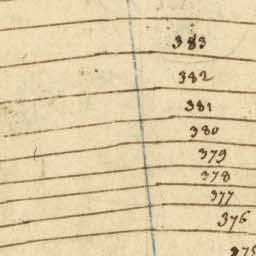 383
382
381
380
379
378
377
376
375